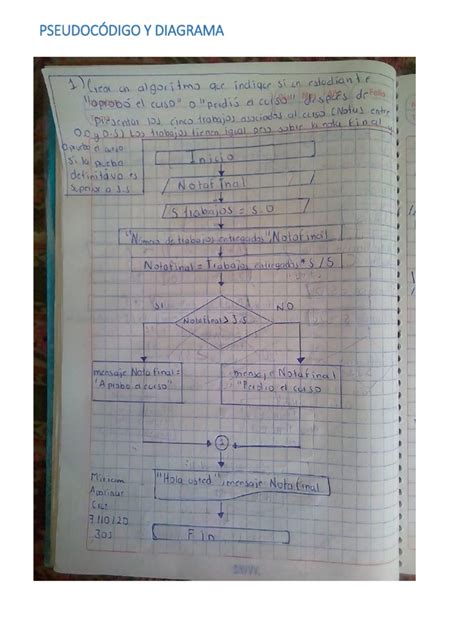 PSEUDOCÓDIGO Y DIAGRAMA
1) Crear un algoritmo que indique si un estudiante
"aprobó el curso" o "perdió el curso" después de
presentar los cinco trabajos asociados al curso (Notas entre
0.0 y 0.5) los trabajos tienen igual peso sobre la nota final y
aprueba el curso
si la prueba
definitiva es
superior a 3.5
Inicio
Notafinal
5 trabajos = 5.0
"Número de trabajos entregados", Notafinal
Notafinal = Trabajos entregados * 5 / 5
SI
NO
Notafinal > 3.5
mensaje Nota final =
"Aprobo el curso"
mensaje Notafinal
"Perdio el curso
1
"Hola usted", mensaje Notafinal
Miriam
Cruz
7/10/20
305
Fin